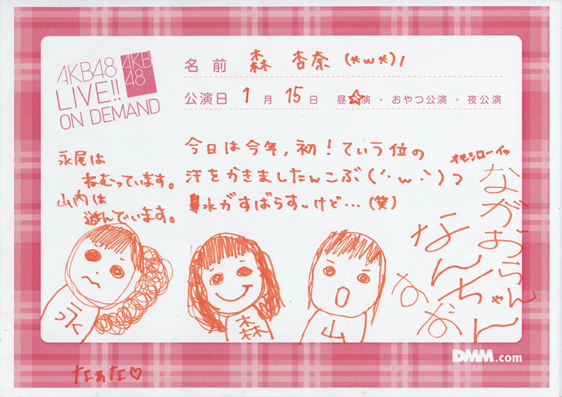 AKB48
LIVE!!
ON DEMAND
AKB
48
名前 森 杏奈 (*w*)/
公演日 1月 15日 昼☆演・おやつ公演・夜公演
今日は今年,初!ていう位の
汗をかきましたんこぶ(´･ω･`)つ
鼻水がすばらすぃけど…(笑)
永尾は
ねむっています。
山内は
遊んでいます。
オモシローイッ
ながおちゃん
なんちゃん
なお
永
森
山
なぁな♡
DMM.com